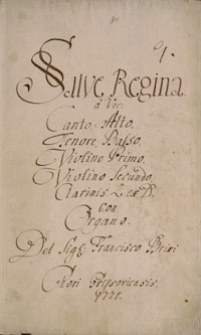 9.
Salve Regina
â Voc:
Canto, Alto,
Tenore, Basso,
Violino Primo,
Violino Secundo,
Clarinis 2 ex D.
Con
Organo.
Del Sig: Francisco Brixi
Chori
1771.